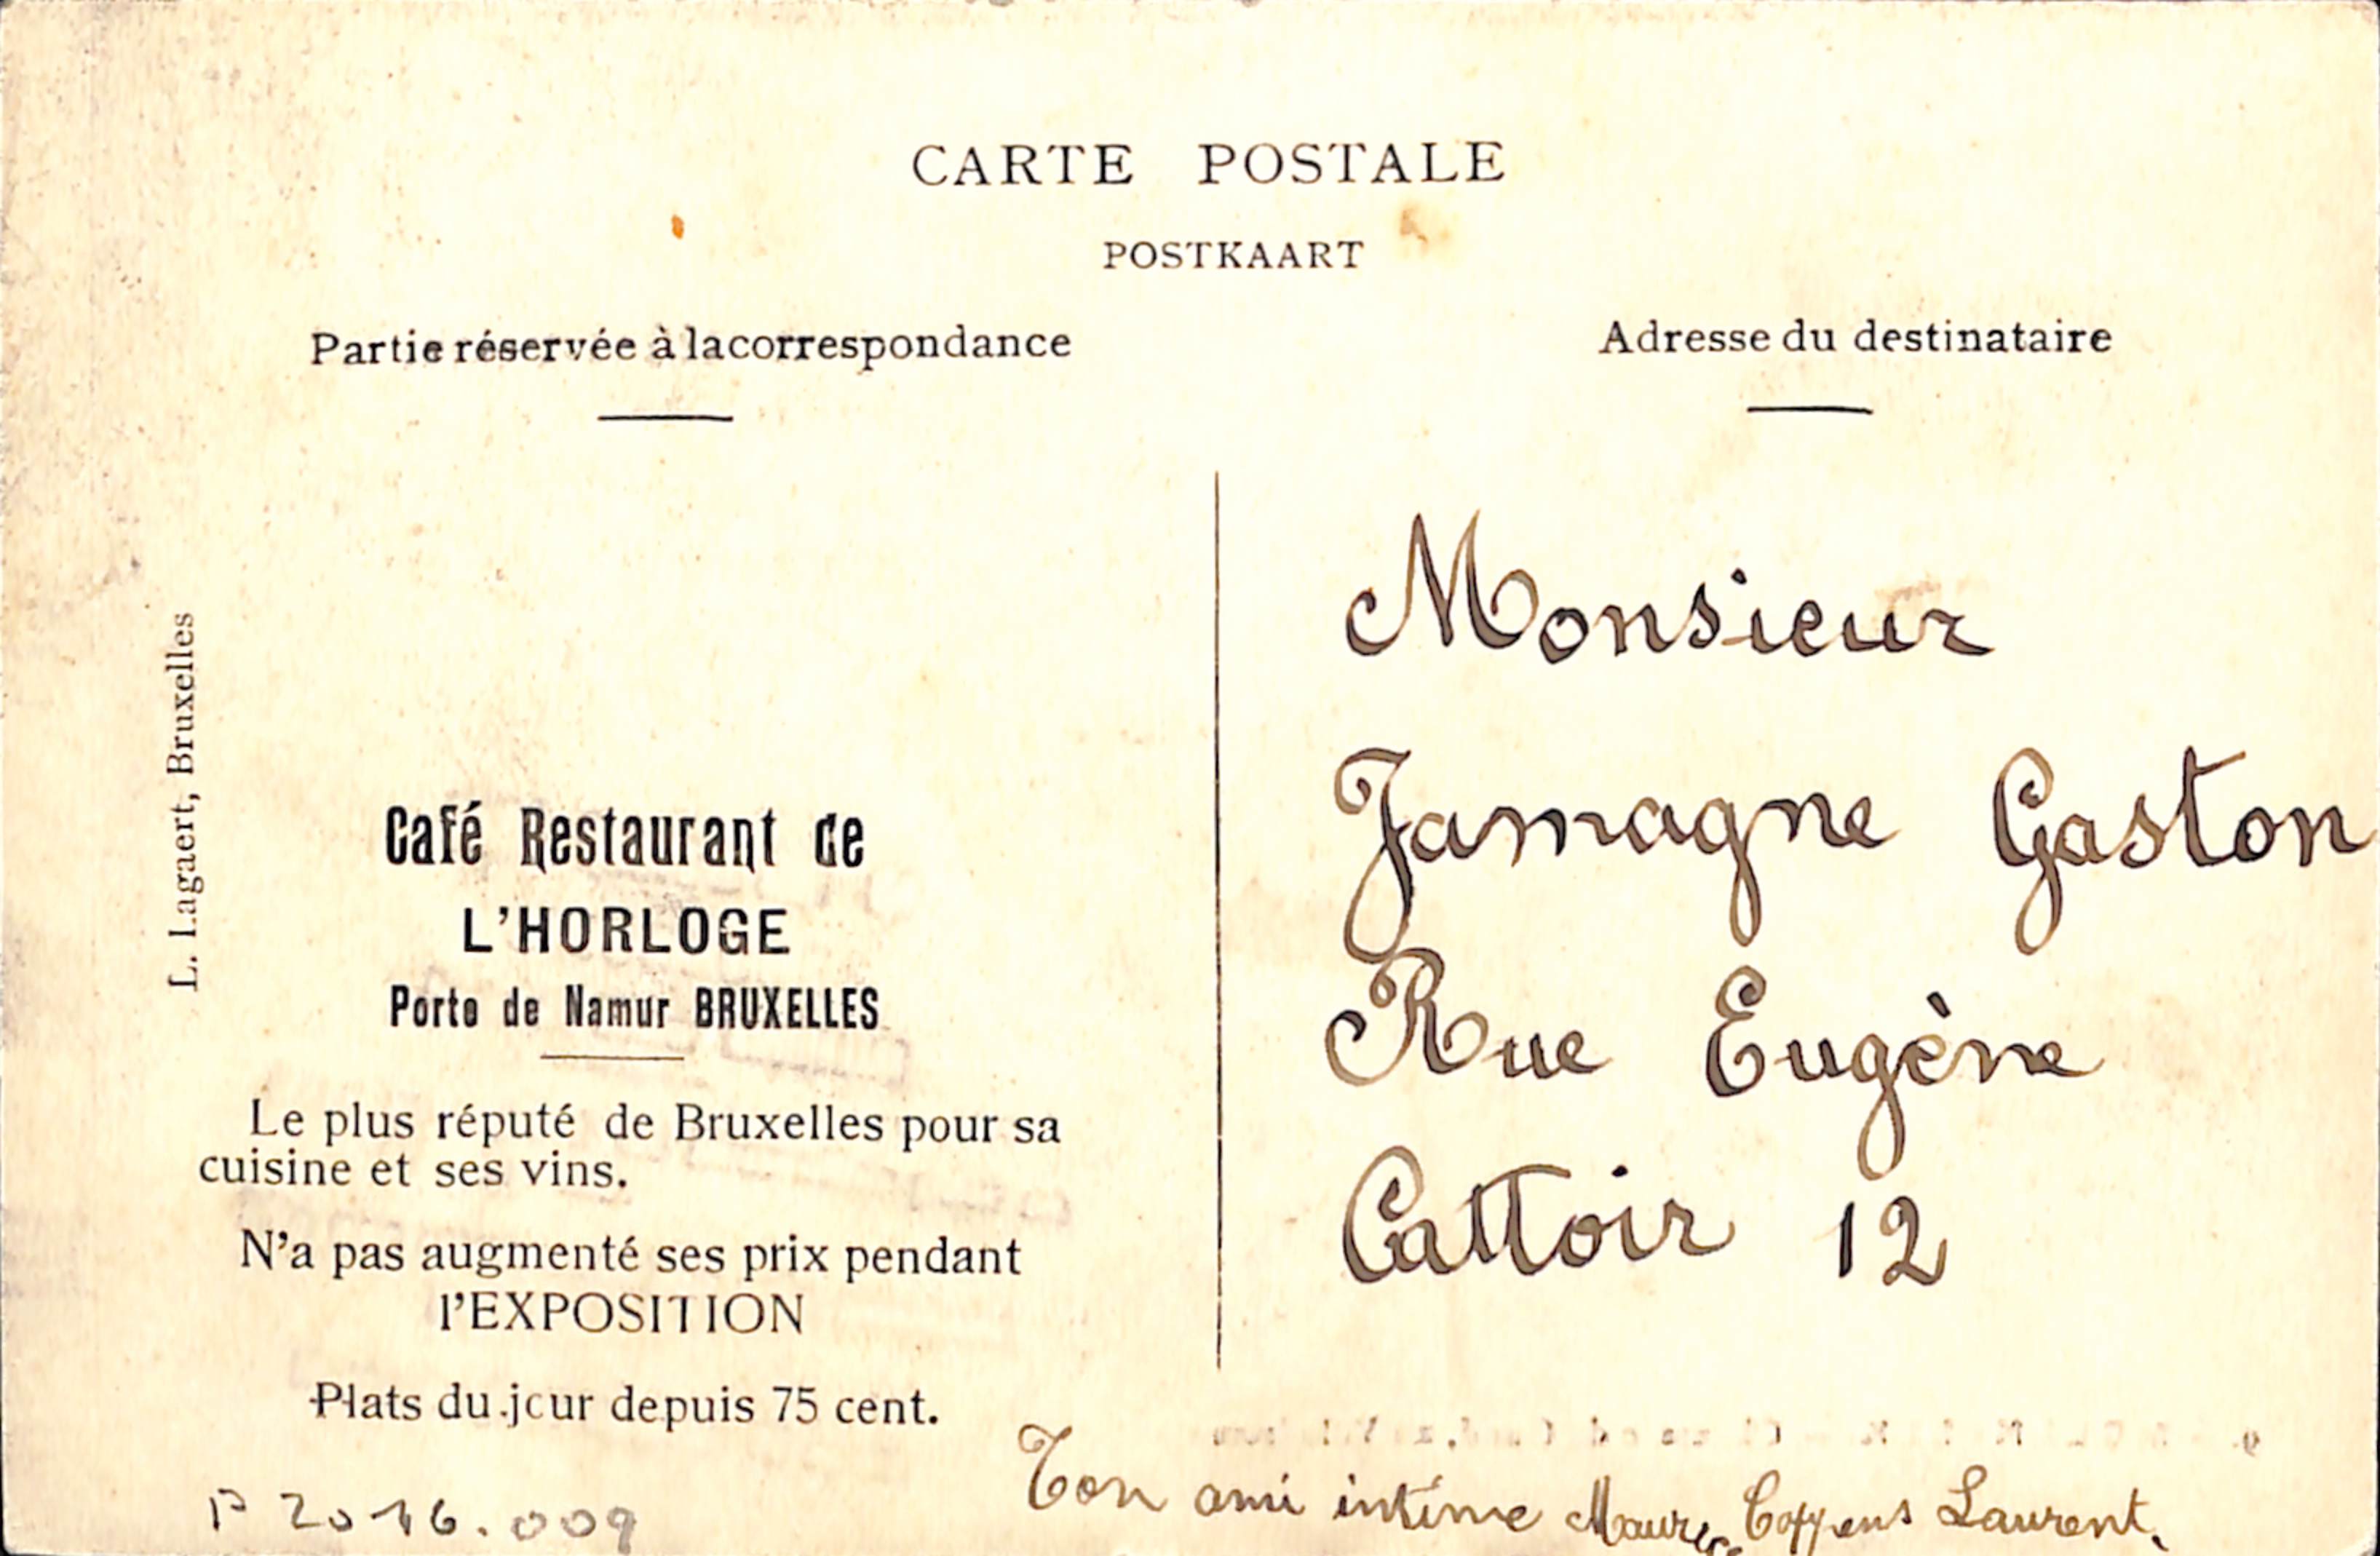 CARTE POSTALE
POSTKAART
Partie réservée à la correspondance
Adresse du destinataire
L. Lagaert, Bruxelles
Café Restaurant de
L'HORLOGE
Porte de Namur BRUXELLES
Le plus réputé de Bruxelles pour sa
cuisine et ses vins.
N'a pas augmenté ses prix pendant
l'EXPOSITION
Plats du jour depuis 75 cent.
Monsieur
Jamagne Gaston
Rue Eugène
Cattoir 12
Ton ami intime Maurice Coppens Laurent.
P 2016.009